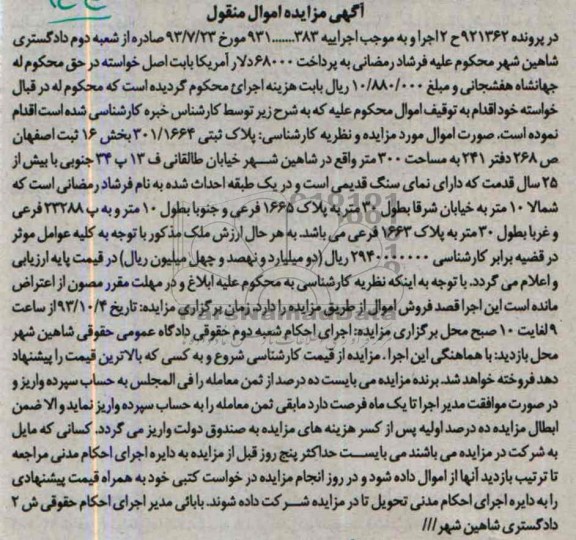 آگهی مزایده اموال منقول
در پرونده ۹۲۱۳۶۲ ح ۲ اجرا و به موجب اجراییه ۳۸۳.......۹۳۱ مورخ ۹۳/۷/۲۳ صادره از شعبه دوم دادگستری
شاهین شهر محکوم علیه فرشاد رمضانی به پرداخت ۶۸۰۰۰ دلار آمریکا بابت اصل خواسته در حق محکوم له
جهانشاه هفشجانی و مبلغ ۱۰/۸۸۰/۰۰۰ ریال بابت هزینه اجرائ محکوم گردیده است که محکوم له در قبال
خواسته خود اقدام به توقیف اموال محکوم علیه که به شرح زیر توسط کارشناس خبره کارشناسی شده است اقدام
نموده است. صورت اموال مورد مزایده و نظریه کارشناسی: پلاک ثبتی ۳۰۱/۱۶۶۴ بخش ۱۶ ثبت اصفهان
ص ۲۶۸ دفتر ۲۴۱ به مساحت ۳۰۰ متر واقع در شاهین شهر خیابان طالقانی ف ۱۳ پ ۳۴ جنوبی با بیش از
۲۵ سال قدمت که دارای نمای سنگ قدیمی است و در یک طبقه احداث شده به نام فرشاد رمضانی است که
شمالا ۱۰ متر به خیابان شرقا بطول ۳۰ متر به پلاک ۱۶۶۵ فرعی و جنوبا بطول ۱۰ متر و به پ ۲۳۲۸۸ فرعی
و غربا بطول ۳۰ متر به پلاک ۱۶۶۳ فرعی می باشد. به هر حال ارزش ملک مذکور با توجه به کلیه عوامل موثر
در قضیه برابر کارشناسی ۲۹۴۰۰۰۰۰۰۰ ریال (دو میلیارد و نهصد و چهل میلیون ریال) در قیمت پایه ارزیابی
و اعلام می گردد. با توجه به اینکه نظریه کارشناسی به محکوم علیه ابلاغ و در مهلت مقرر مصون از اعتراض
مانده است این اجرا قصد فروش اموال از طریق مزایده را دارد. زمان برگزاری مزایده: تاریخ ۹۳/۱۰/۴ از ساعت
۹ لغایت ۱۰ صبح محل برگزاری مزایده: اجرای احکام شعبه دوم حقوقی دادگاه عمومی حقوقی شاهین شهر
محل بازدید: با هماهنگی این اجرا. مزایده از قیمت کارشناسی شروع و به کسی که بالاترین قیمت را پیشنهاد
دهد فروخته خواهد شد. برنده مزایده می بایست ده درصد از ثمن معامله را فی المجلس به حساب سپرده واریز و
در صورت موافقت مدیر اجرا تا یک ماه فرصت دارد مابقی ثمن معامله را به حساب سپرده واریز نماید و الا ضمن
ابطال مزایده ده درصد اولیه پس از کسر هزینه های مزایده به صندوق دولت واریز می گردد. کسانی که مایل
به شرکت در مزایده می باشند می بایست حداکثر پنج روز قبل از مزایده به دایره اجرای احکام مدنی مراجعه
تا ترتیب بازدید آنها از اموال داده شود و در روز انجام مزایده در خواست کتبی خود به همراه قیمت پیشنهادی
را به دایره اجرای احکام مدنی تحویل تا در مزایده شرکت داده شوند. بابائی مدیر اجرای احکام حقوقی ش ۲
دادگستری شاهین شهر ///